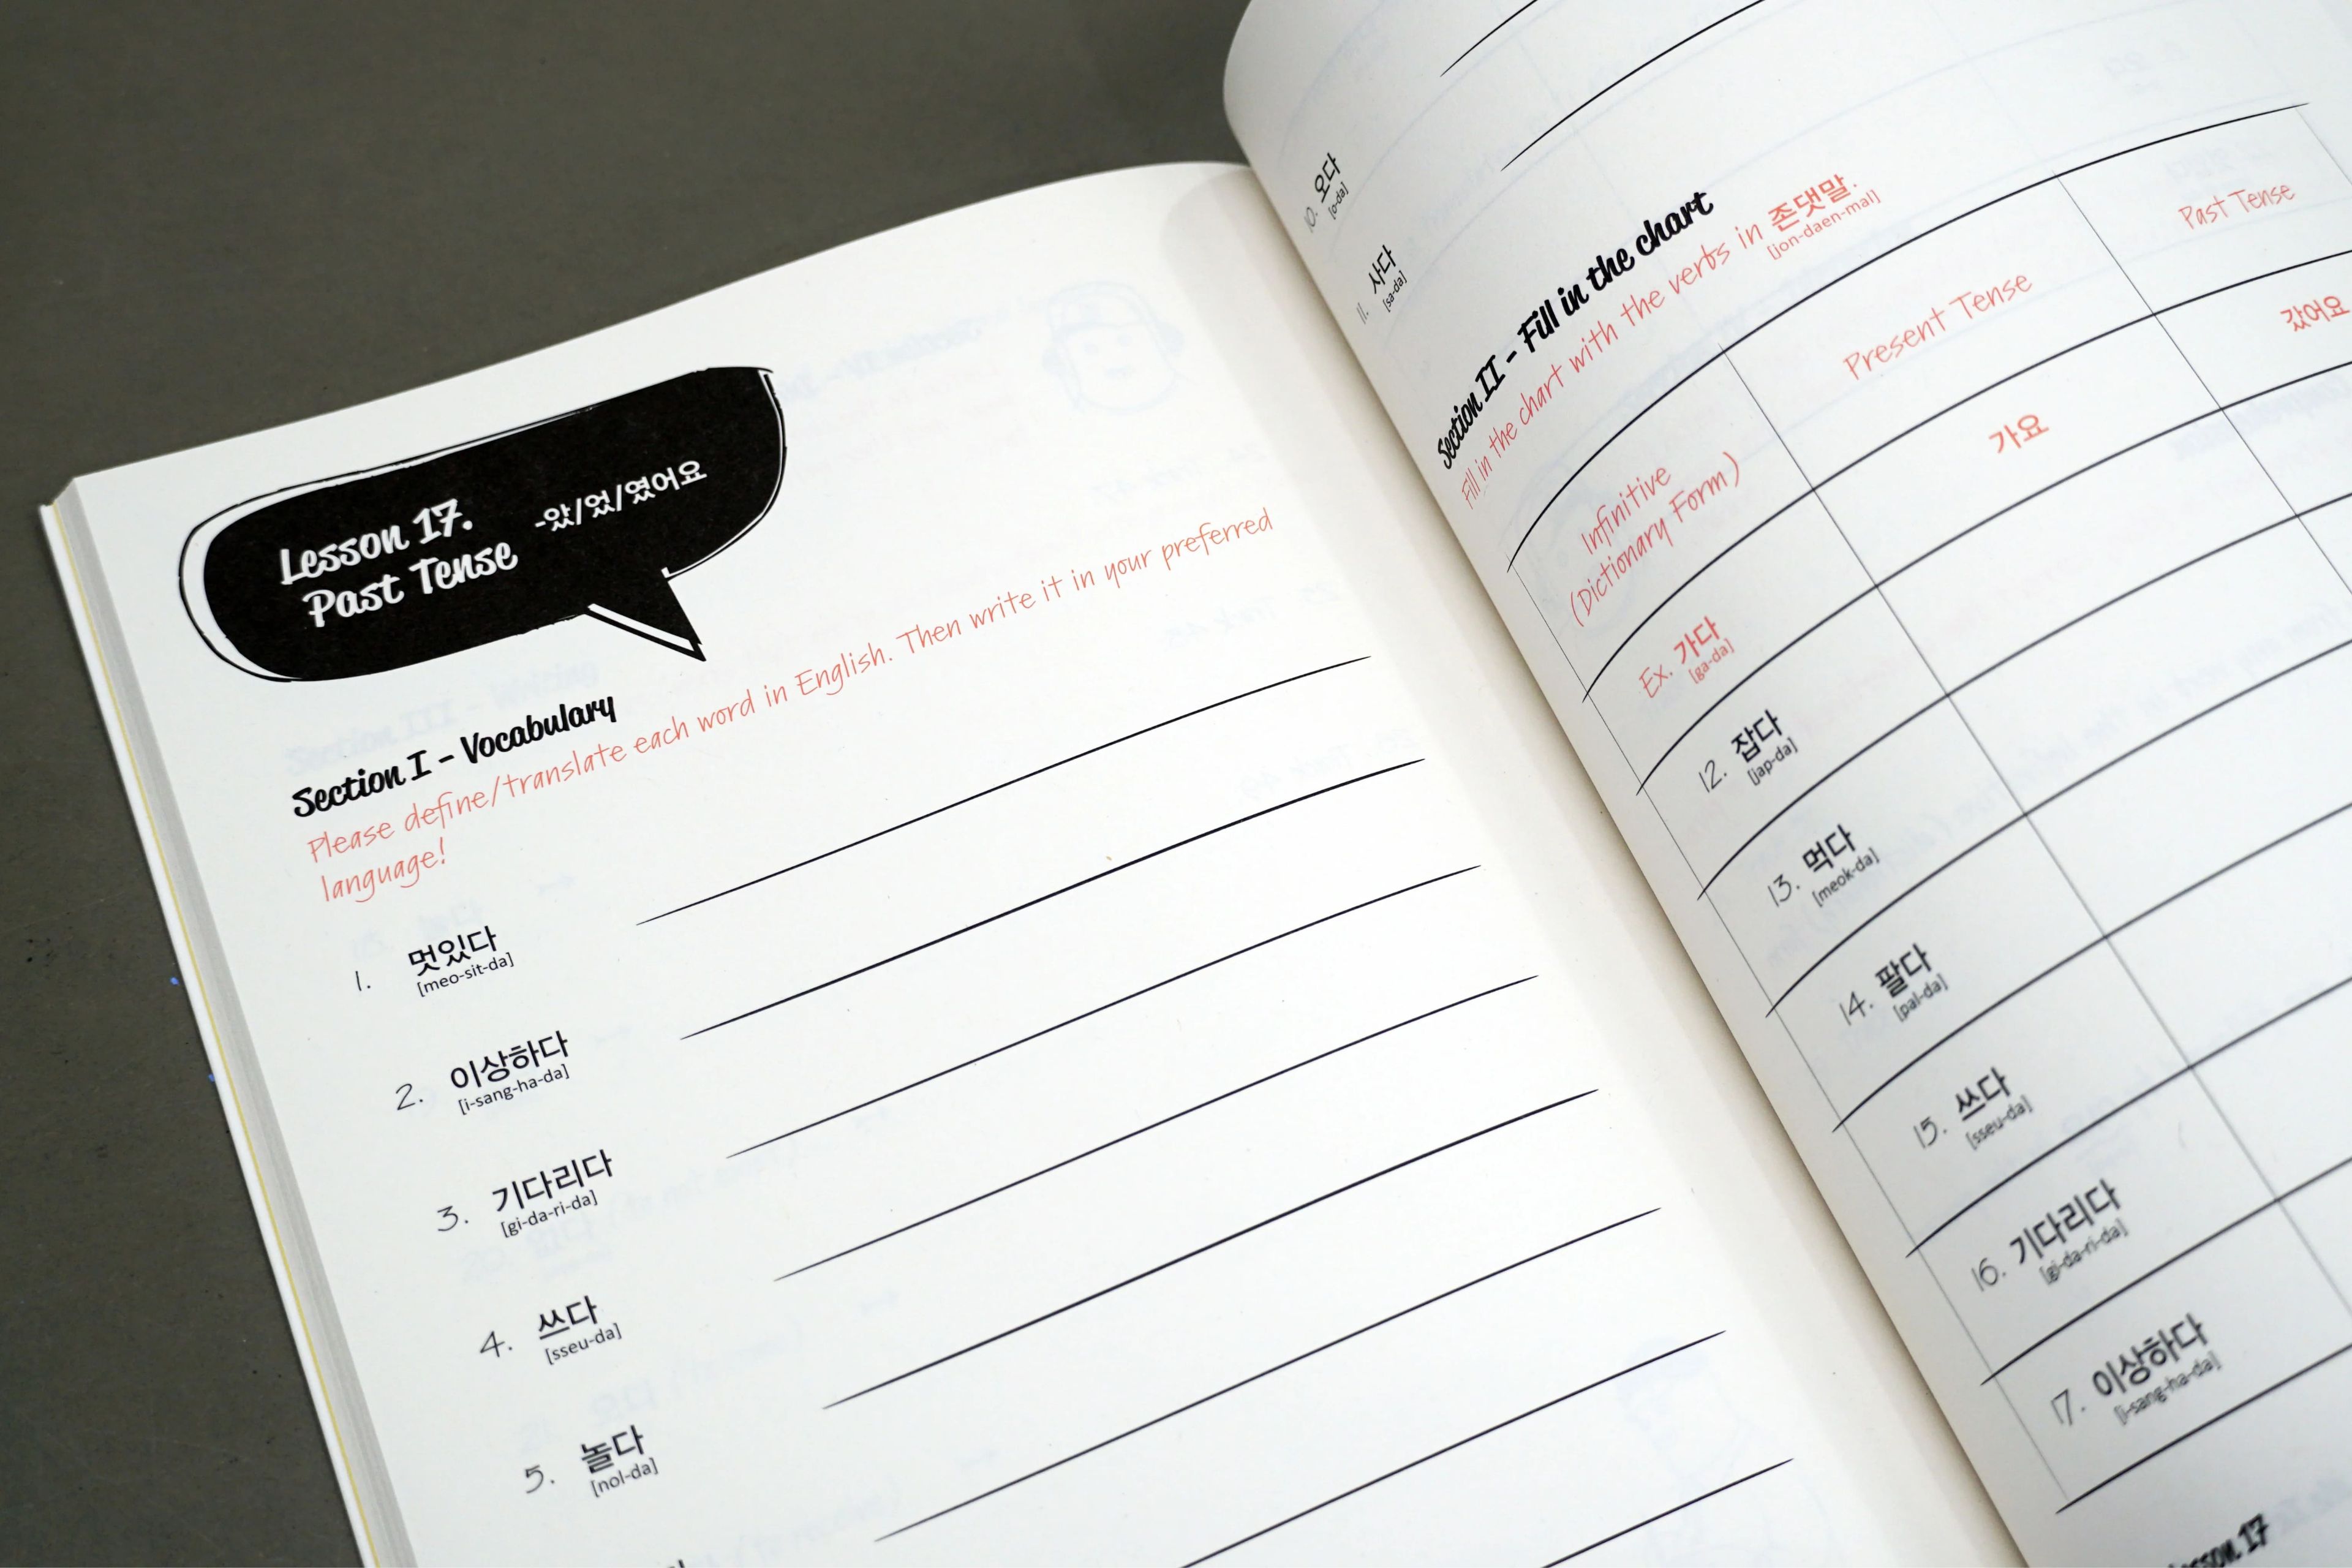 Lesson 17.
Past Tense
-았/었/였어요
Section I - Vocabulary
Please define/translate each word in English. Then write it in your preferred
language!
1. 멋있다
[meo-sit-da]
2. 이상하다
[i-sang-ha-da]
3. 기다리다
[gi-da-ri-da]
4. 쓰다
[sseu-da]
5. 놀다
[nol-da]
10. 오다
[o-da]
11. 사다
[sa-da]
Section II - Fill in the chart
Fill in the chart with the verbs in 존댓말.
[jon-daen-mal]
Infinitive
(Dictionary Form)
Present Tense
Past Tense
Ex. 가다
[ga-da]
가요
갔어요
12. 잡다
[jap-da]
13. 먹다
[meok-da]
14. 팔다
[pal-da]
15. 쓰다
[sseu-da]
16. 기다리다
[gi-da-ri-da]
17. 이상하다
[i-sang-ha-da]
Lesson 17